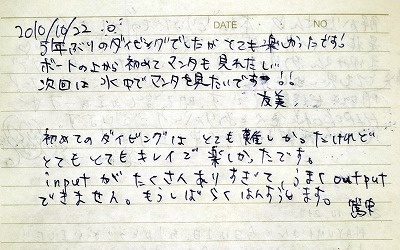 2010/10/22
DATE NO
5年ぶりのダイビングでしたがとても楽しかったです!
ボートの上から初めてマンタも見れたし...
次回は水中でマンタを見たいです!!
友美
初めてのダイビングは とても難しかったけれど
とてもとてもキレイで楽しかったです。
inputが たくさんありすぎて、うまくoutput
できません。もうしばらくはんすうします。